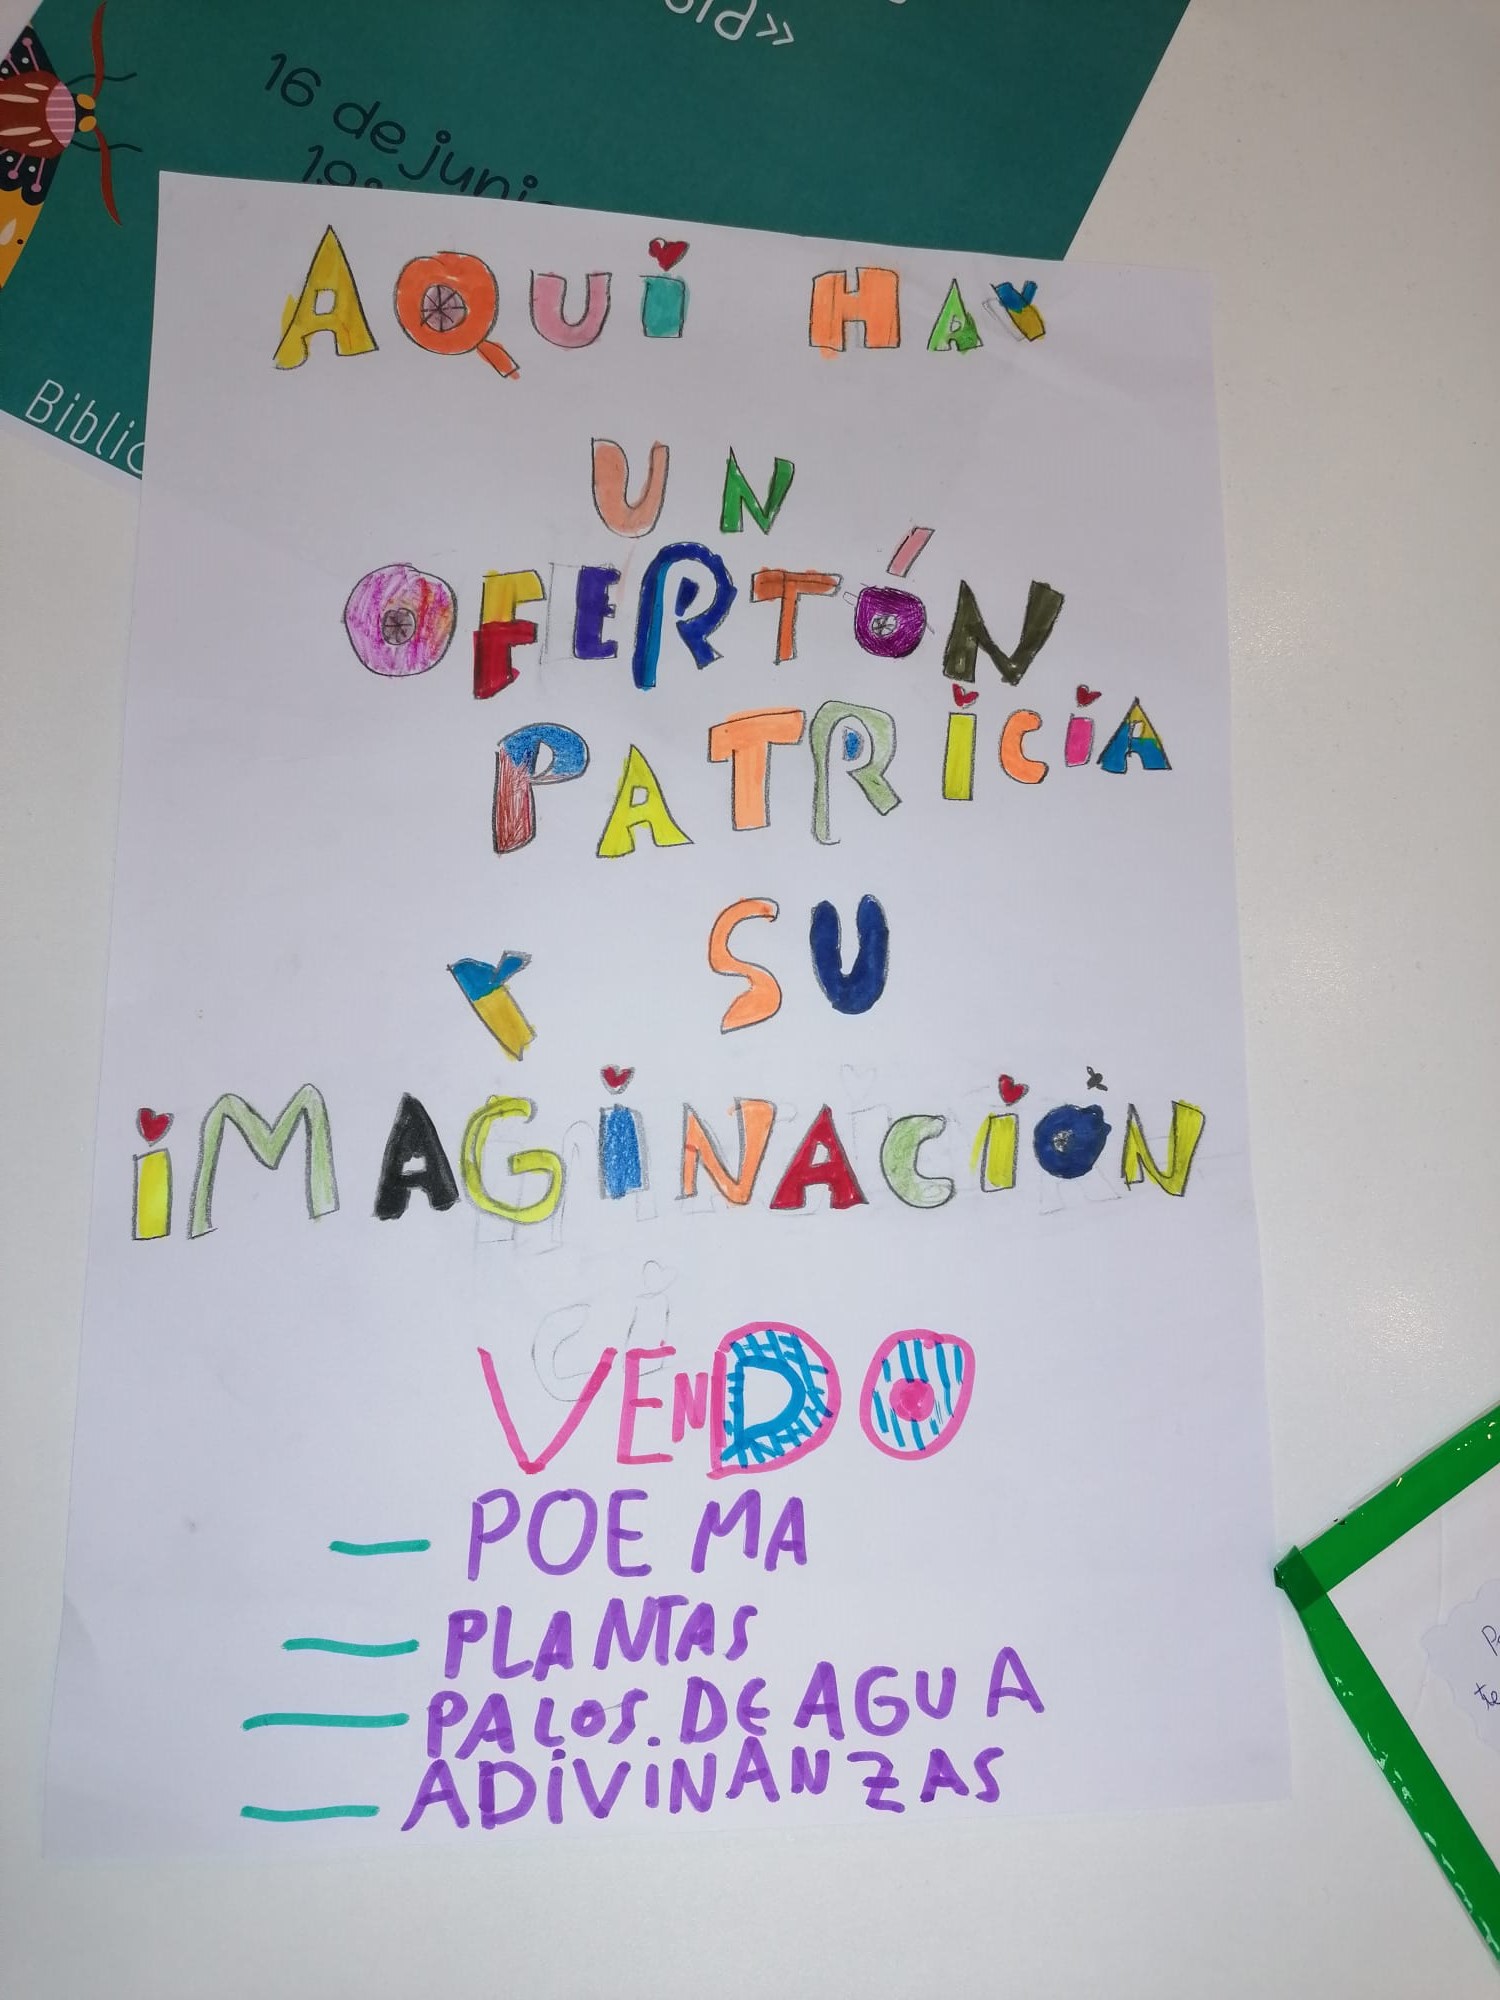 16 de juni
Biblio
AQUi HAY
UN
OFERTÓN
PATRiCiA
Y SU
iMAGiNACiÓN
VENDO
— POEMA
— PLANTAS
— PALOS. DE AGUA
— ADiViNANZAS